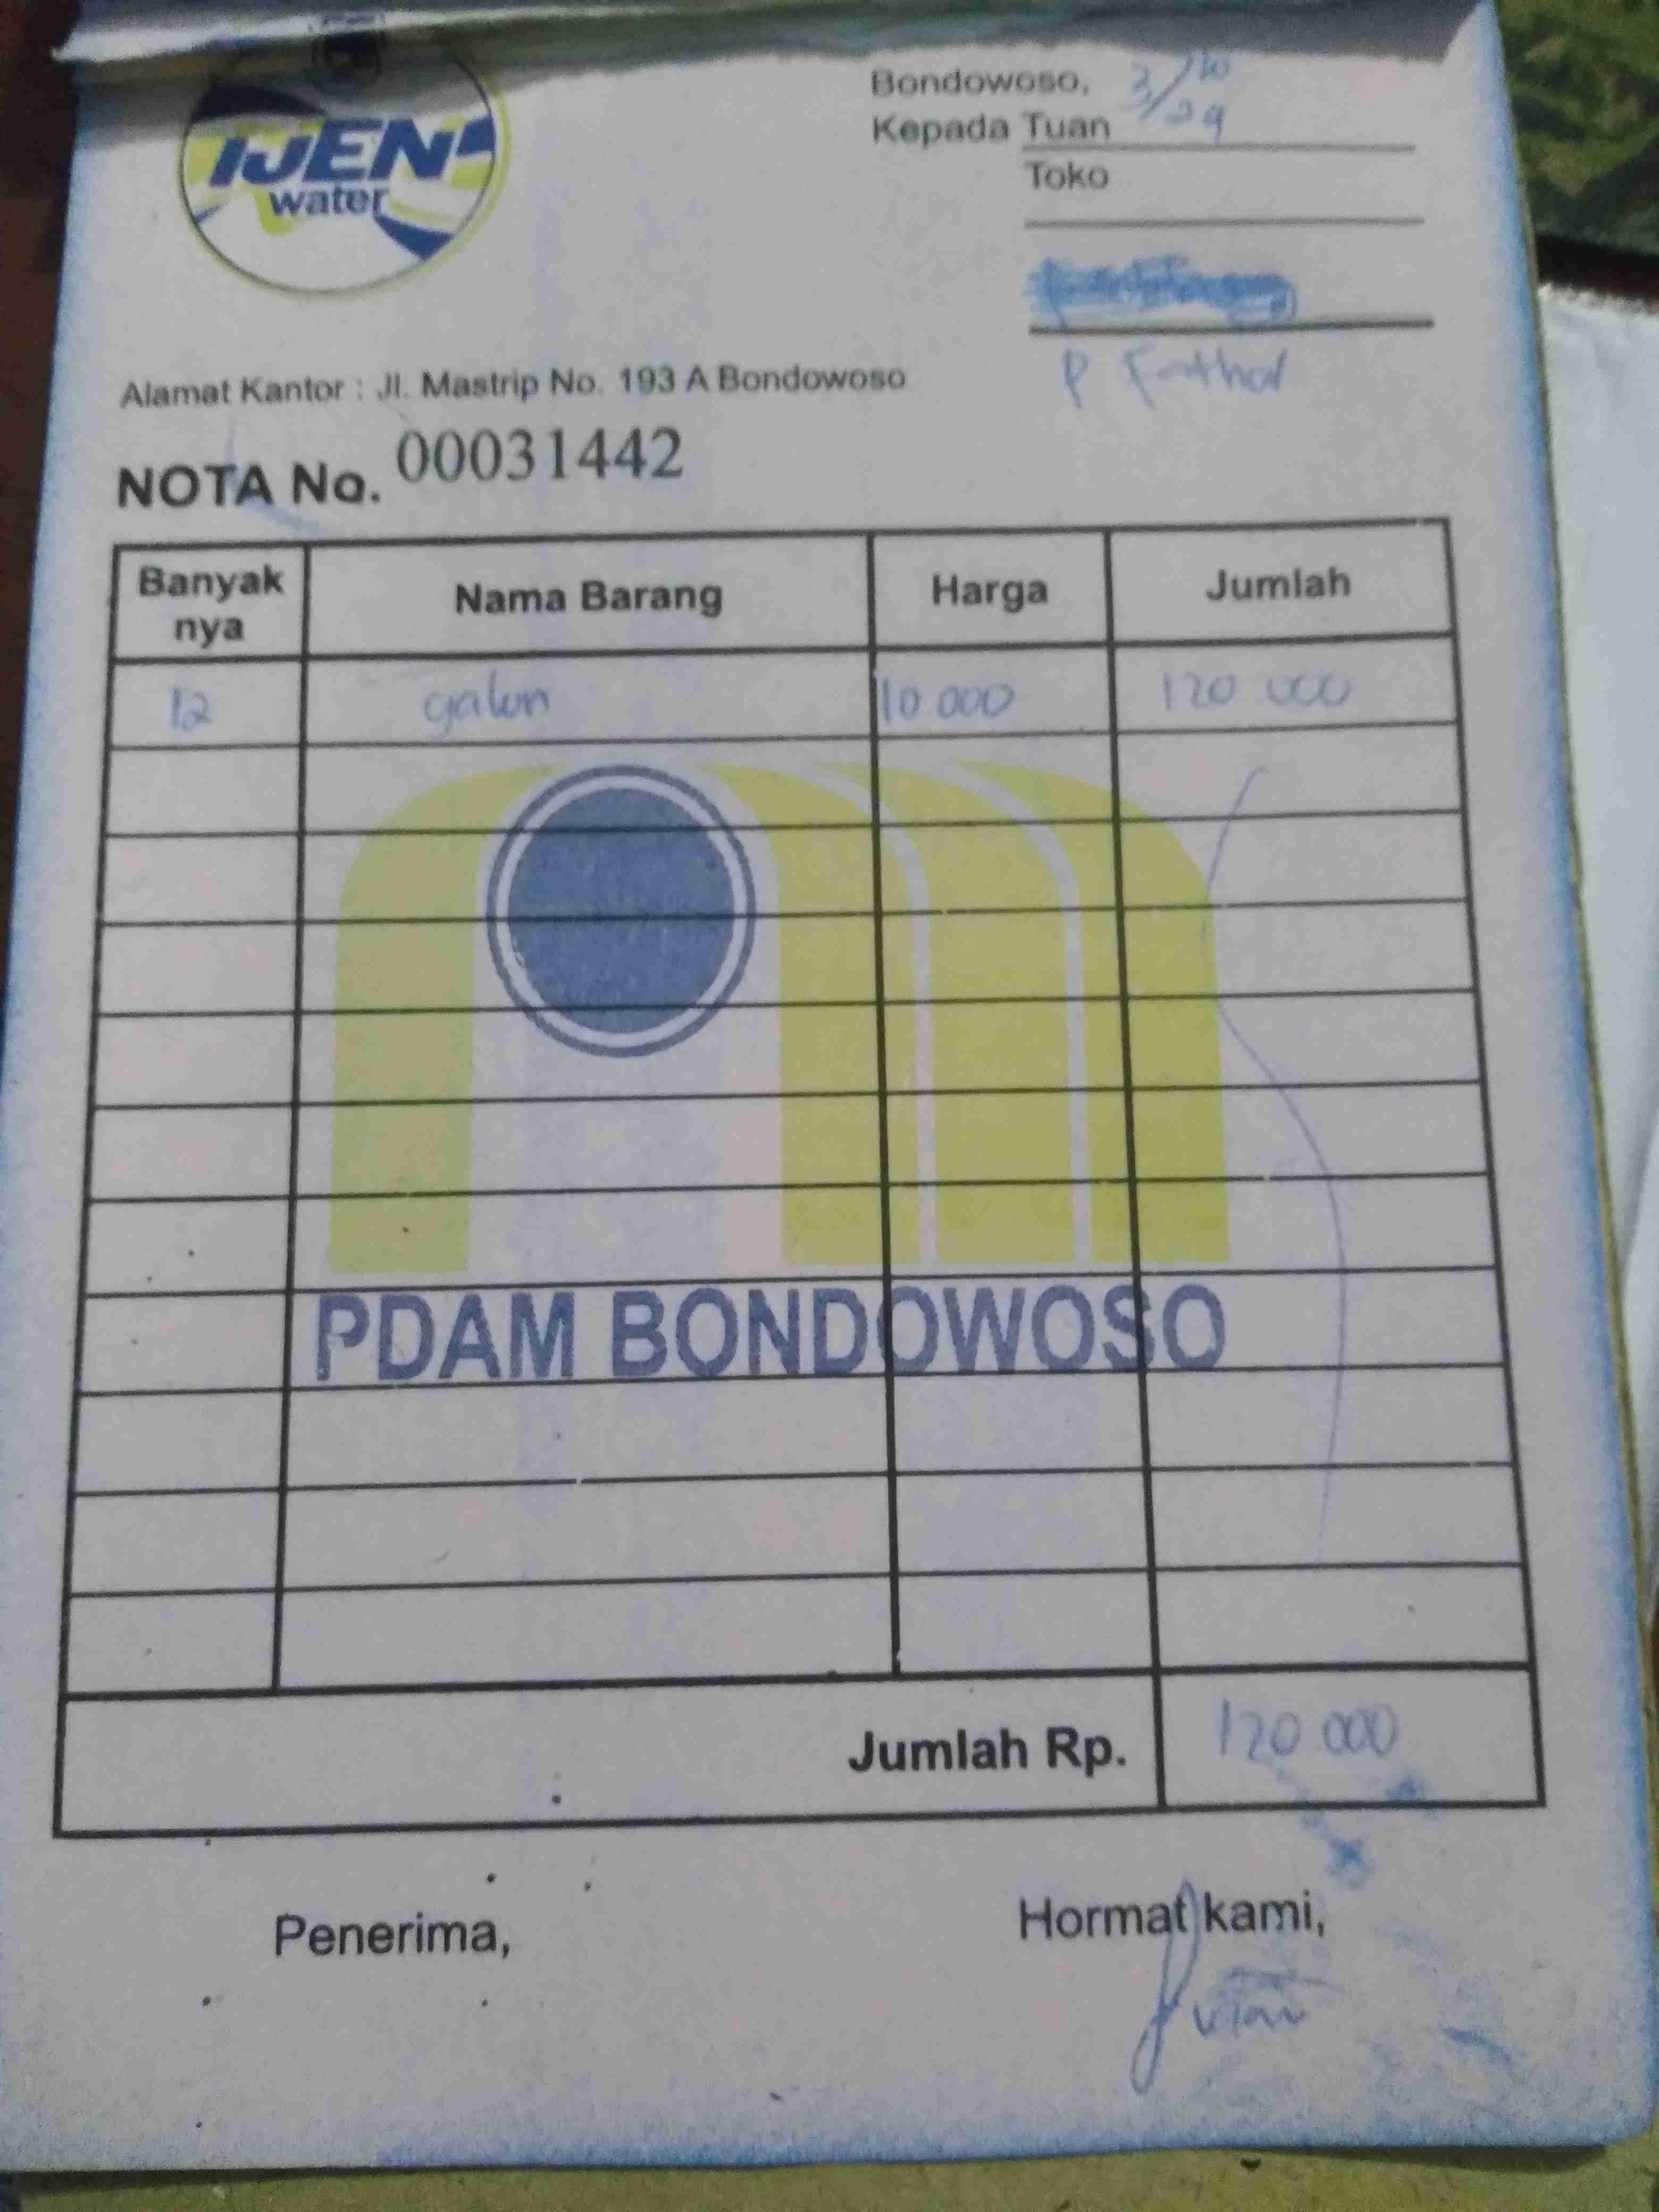 IJEN
water
Bondowoso, 3/10
Kepada Tuan
Toko
P Fathol
Alamat Kantor : Jl. Mastrip No. 193 A Bondowoso
NOTA No. 00031442
Banyak nya Nama Barang Harga Jumlah
12 galon 10 000 120 000
PDAM BONDOWOSO
Jumlah Rp. 120 000
Penerima, Hormat kami,